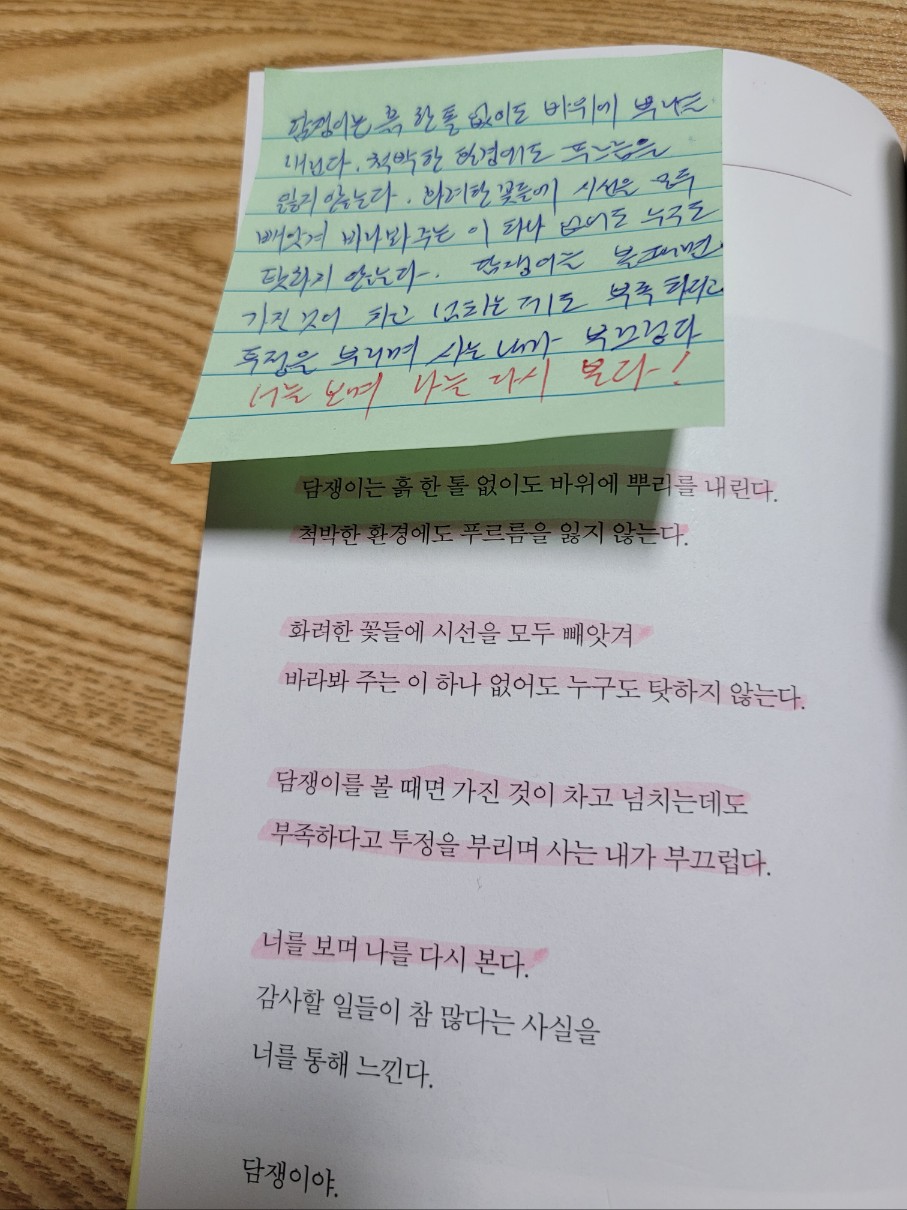 담쟁이는 흙 한 톨 없이도 바위에 뿌리를
내린다. 척박한 환경에도 푸르름을
잃지 않는다. 화려한 꽃들에 시선을 모두
빼앗겨 바라봐 주는 이 하나 없어도 누구도
탓하지 않는다. 담쟁이를 볼때면
가진 것이 차고 넘치는데도 부족하다고
투정을 부리며 사는 내가 부끄럽다
너를 보며 나를 다시 본다!
담쟁이는 흙 한 톨 없이도 바위에 뿌리를 내린다.
척박한 환경에도 푸르름을 잃지 않는다.
화려한 꽃들에 시선을 모두 빼앗겨
바라봐 주는 이 하나 없어도 누구도 탓하지 않는다.
담쟁이를 볼 때면 가진 것이 차고 넘치는데도
부족하다고 투정을 부리며 사는 내가 부끄럽다.
너를 보며 나를 다시 본다.
감사할 일들이 참 많다는 사실을
너를 통해 느낀다.
담쟁이야.